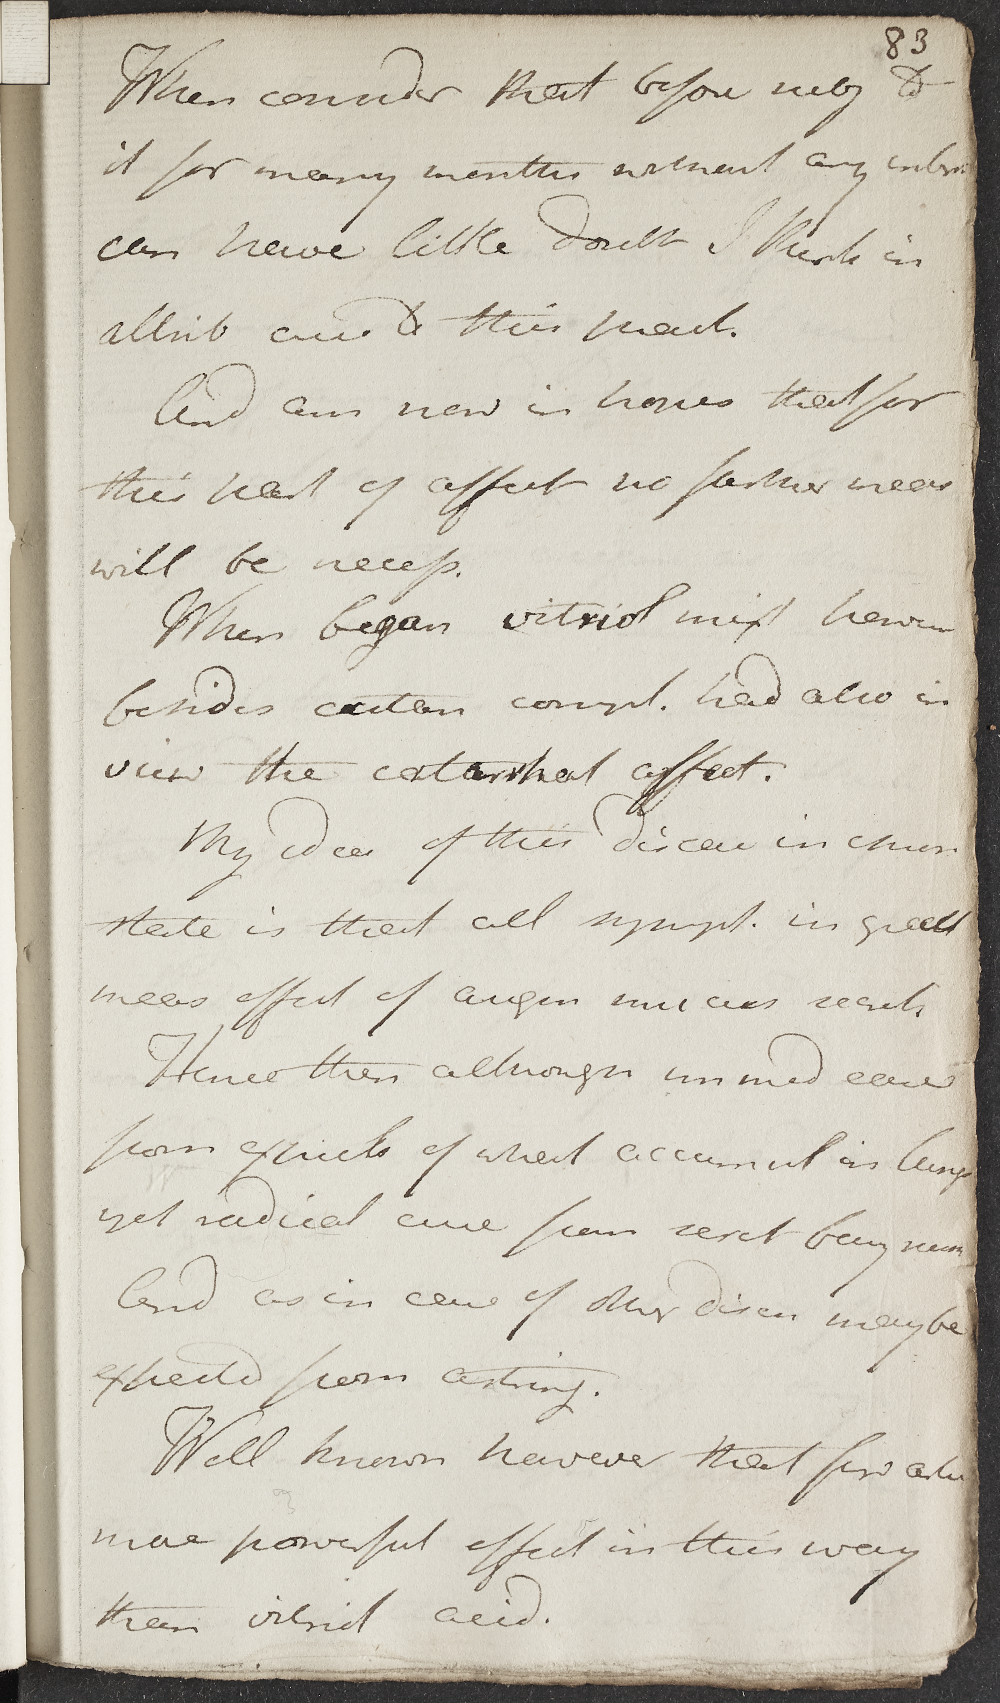 83
When consider that before subj to
it for many months without any
can have little doubt I think in
attrib cure to this pract.
And am now in hopes that for
this part of affect no farther meas
will be necess.
When began vitriol mixt howev
besides cutan compl. had also in
view the catarrhal affect.
My idea of this disease in chron
state is that all sympt. in great
meas effect of augm mucus secret.
Hence then although immed ease
from expect of what accumul in lungs
yet radical cure from secret being
And as in case of other diseas may be
expected from astring.
Well known however that few
more powerful effect in this way
than vitriol acid.